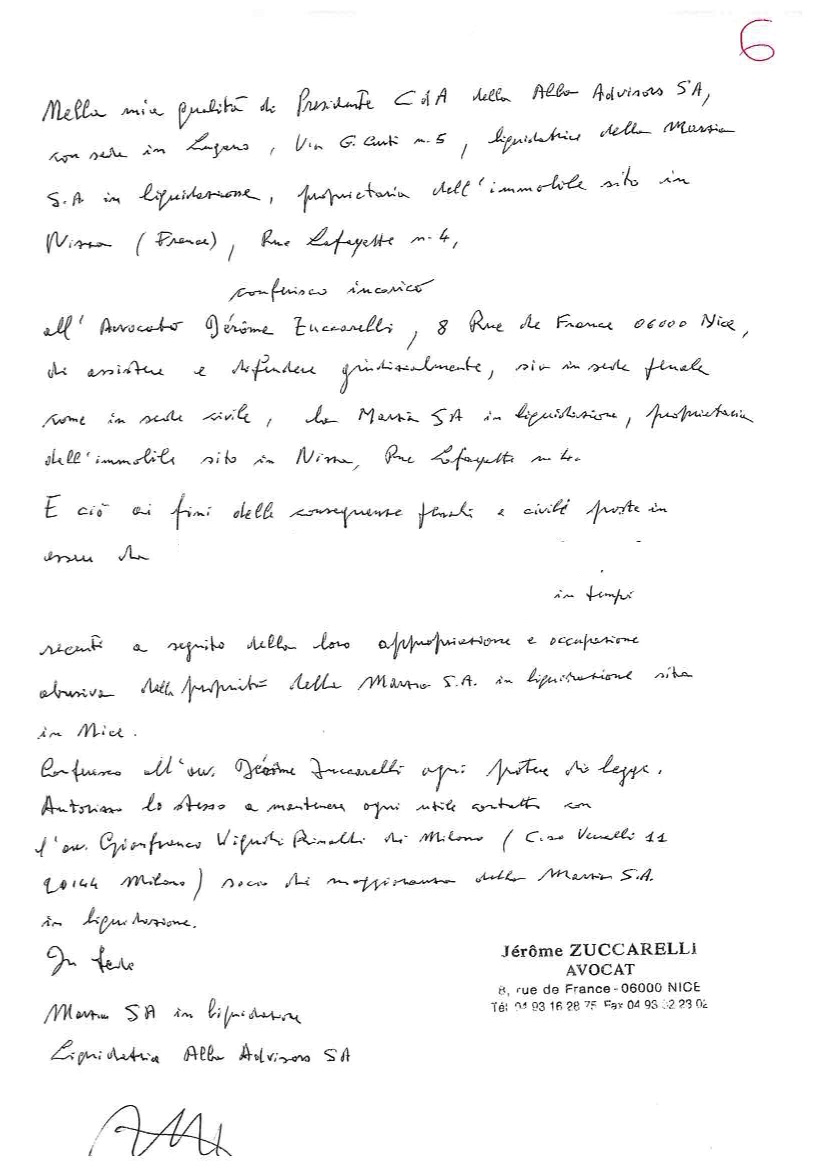 6
Nella mia qualità di Presidente CdA della Alba Advisors SA,
con sede in Lugano, Via G. Curti n. 5, liquidatrice della Massia
S.A in liquidazione, proprietaria dell'immobile sito in
Nizza (France), Rue Lafayette n. 4,
conferisco incarico
all'Avvocato Jérôme Zuccarelli, 8 Rue de France 06000 Nice,
di assistere e difendere giudizialmente, sia in sede penale
come in sede civile, la SA in liquidazione, proprietaria
dell'immobile sito in Nizza, Rue Lafayette n. 4.
E ciò ai fini delle conseguenze penali e civili poste in
essere da
in tempi
recenti a seguito della loro appropriazione e occupazione
abusiva della proprietà della S.A. in liquidazione sita
in Nice.
Conferisco all'avv. Jérôme Zuccarelli ogni potere di legge.
Autorizzo lo stesso a mantenere ogni utile contatto con
l'avv. Gianfranco di Milano (C.so 11
20144 Milano) socio di maggioranza della S.A.
in liquidazione.
In fede
SA in liquidazione
Liquidatrice Alba Advisors SA
Jérôme ZUCCARELLI
AVOCAT
8, rue de France - 06000 NICE
Tél 04 93 16 28 75 Fax 04 93 22 02